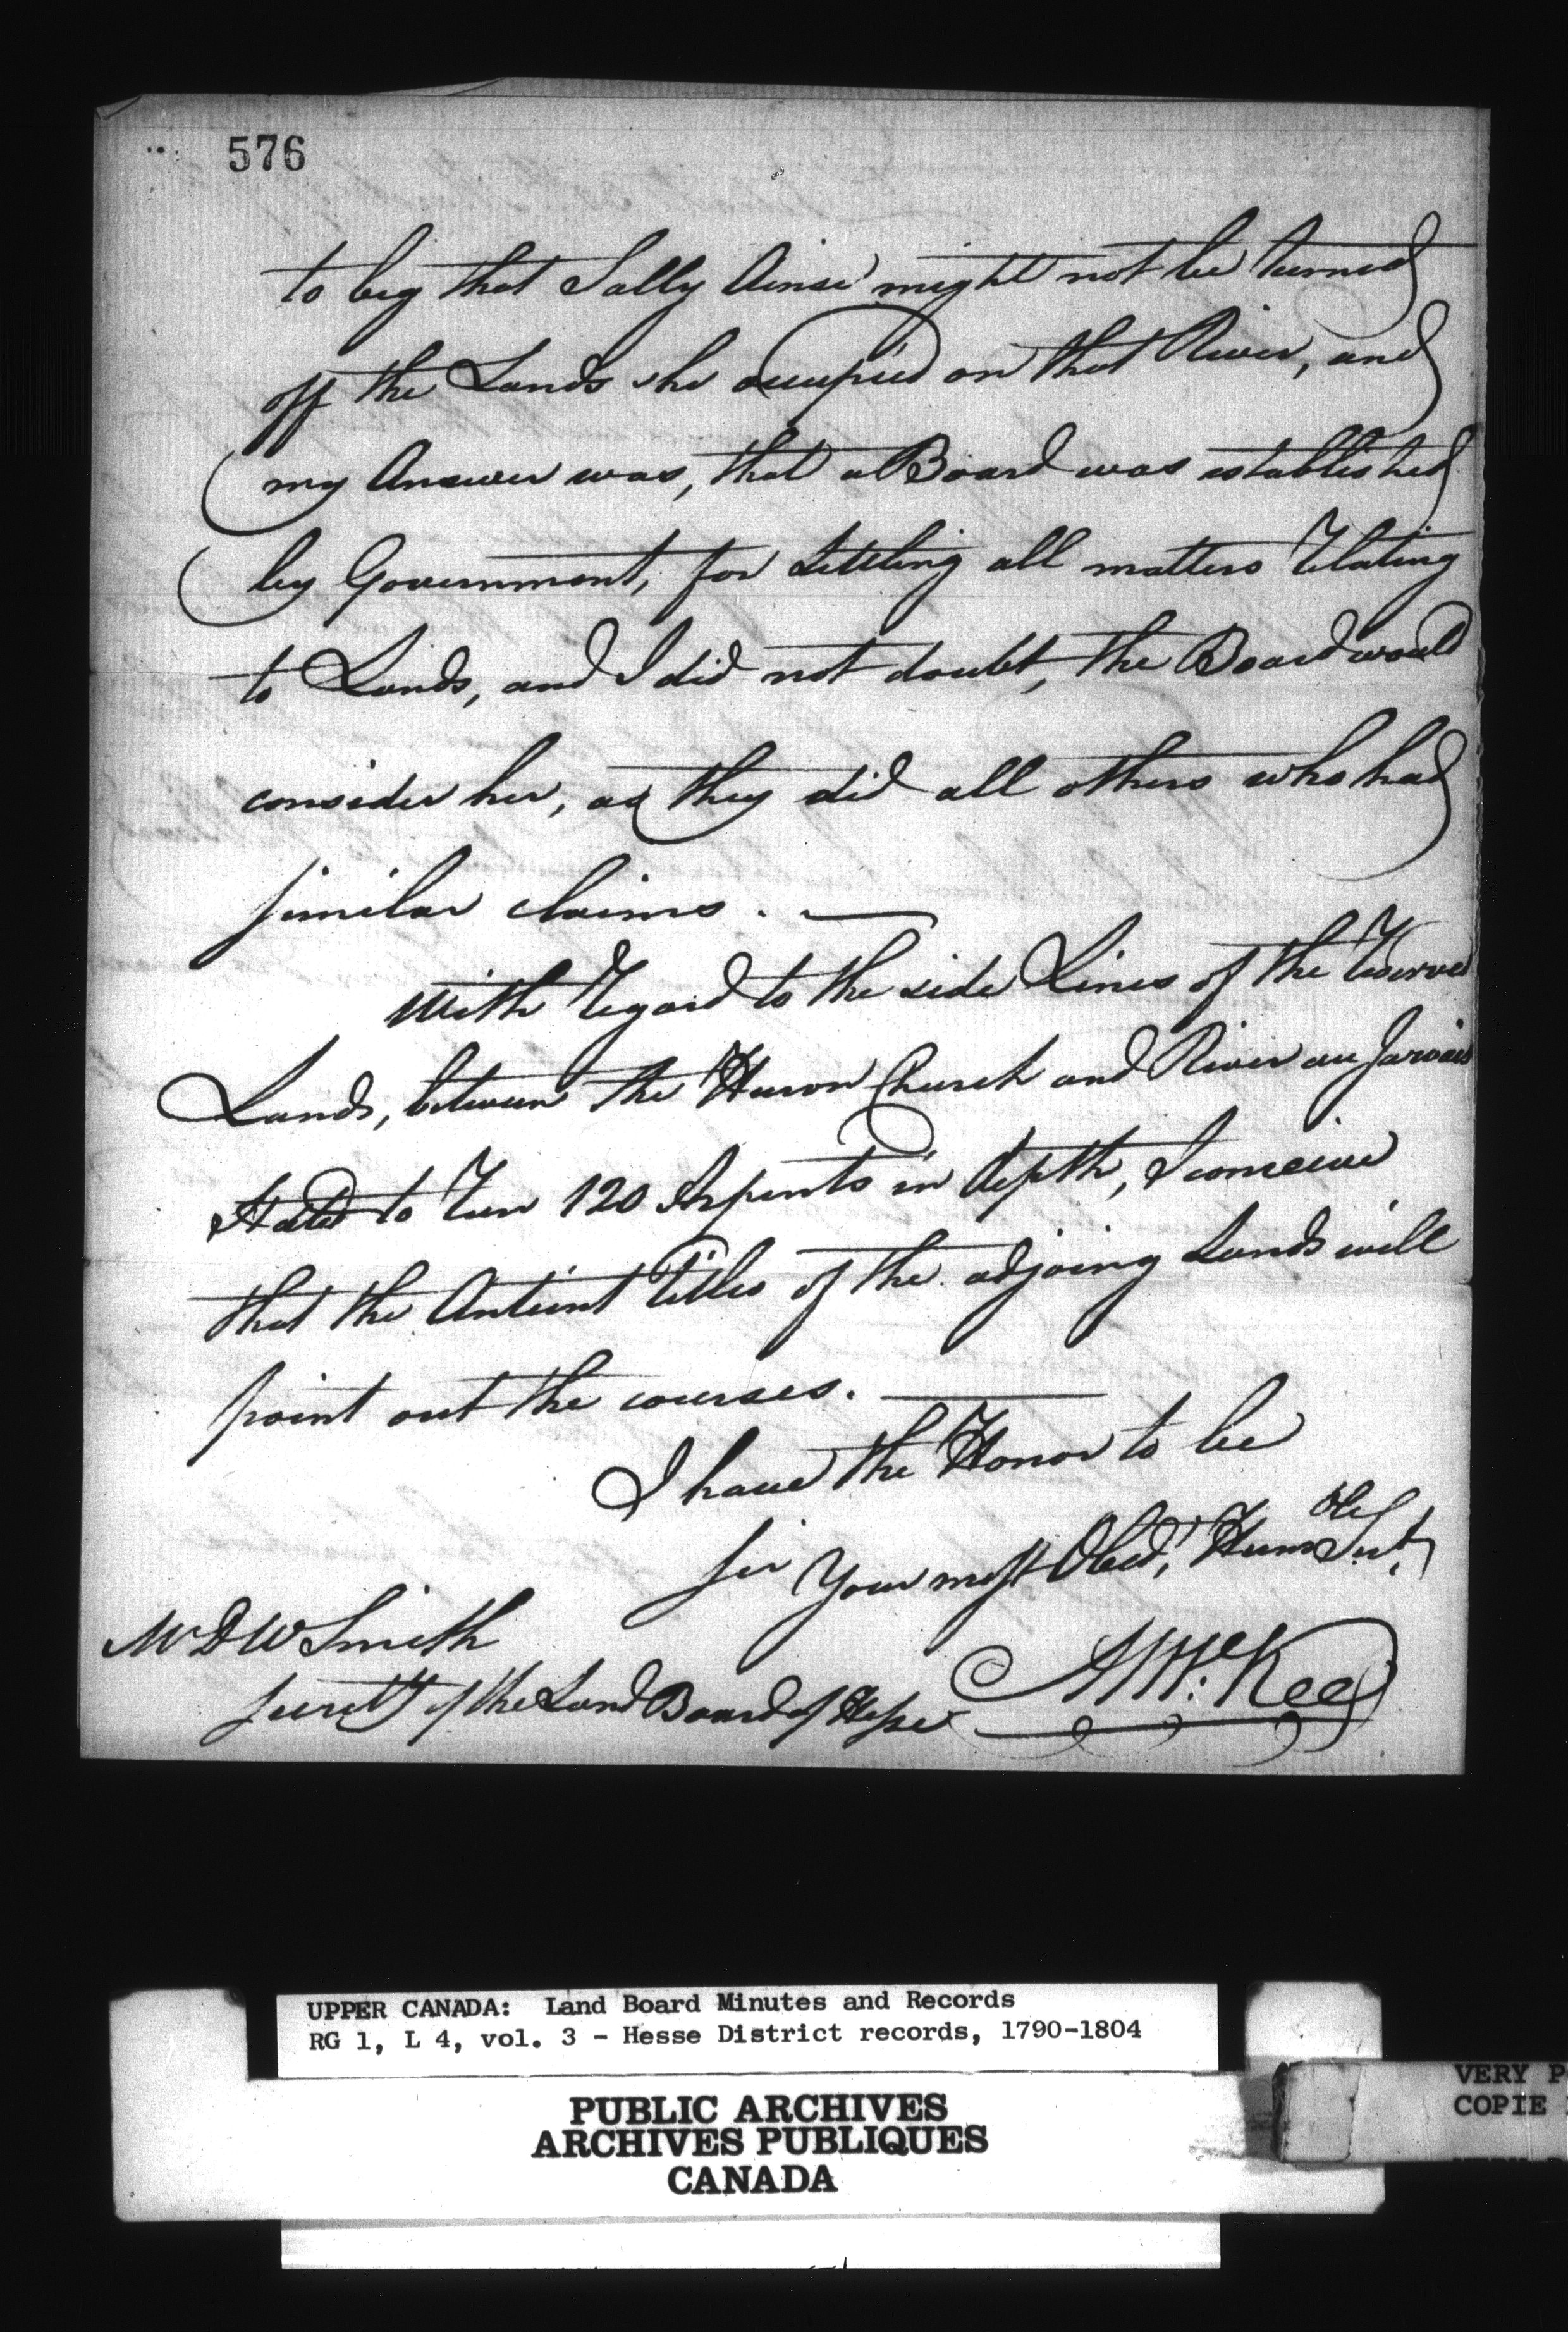 576
to beg that Sally Ainse might not be turned
off the Lands she occupied on that River, and
my Answer was, that a Board was established
by Government, for Settling all matters Relating
to Lands, and I did not doubt, the Board would
consider her, as they did all others who had
similar claims. —
With Regard to the side Lines of the Reserved
Lands, between the Huron Church and River au Jarvais
Stated to Run 120 Arpents in depth, I conceive
that the Antient titles of the adjoing Lands will
point out the courses. —
I have the Honor to be
Sir Your most Obedt, Humble Servt,
Mr D W Smith
AMcKee
Secretty of the Land Board of Hesse
UPPER CANADA: Land Board Minutes and Records
RG 1, L 4, vol. 3 - Hesse District records, 1790-1804
PUBLIC ARCHIVES
ARCHIVES PUBLIQUES
CANADA
VERY P
COPIE